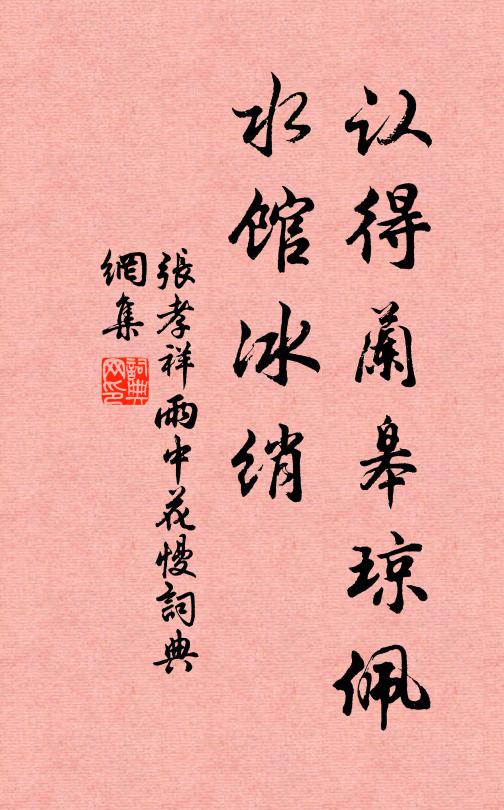 认得兰皋琼佩
水馆冰绡
張孝祥雨中花慢詞典
網集
詞典网印